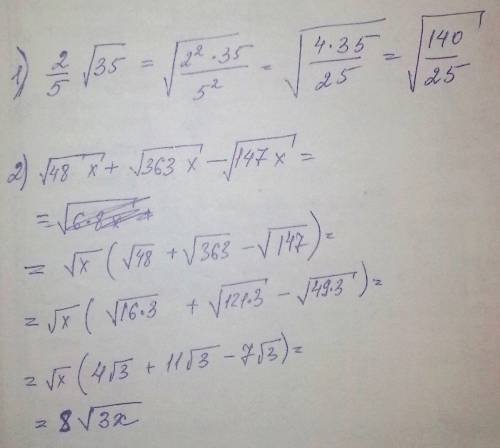 1) 2/5 √35 = √(2² · 35 / 5²) = √(4 · 35 / 25) = √(140 / 25)
2) √(48 x) + √(363 x) − √(147 x) =
= √
= √x (√48 + √363 − √147) =
= √x (√(16·3) + √(121·3) − √(49·3)) =
= √x (4√3 + 11√3 − 7√3) =
= 8√(3x)